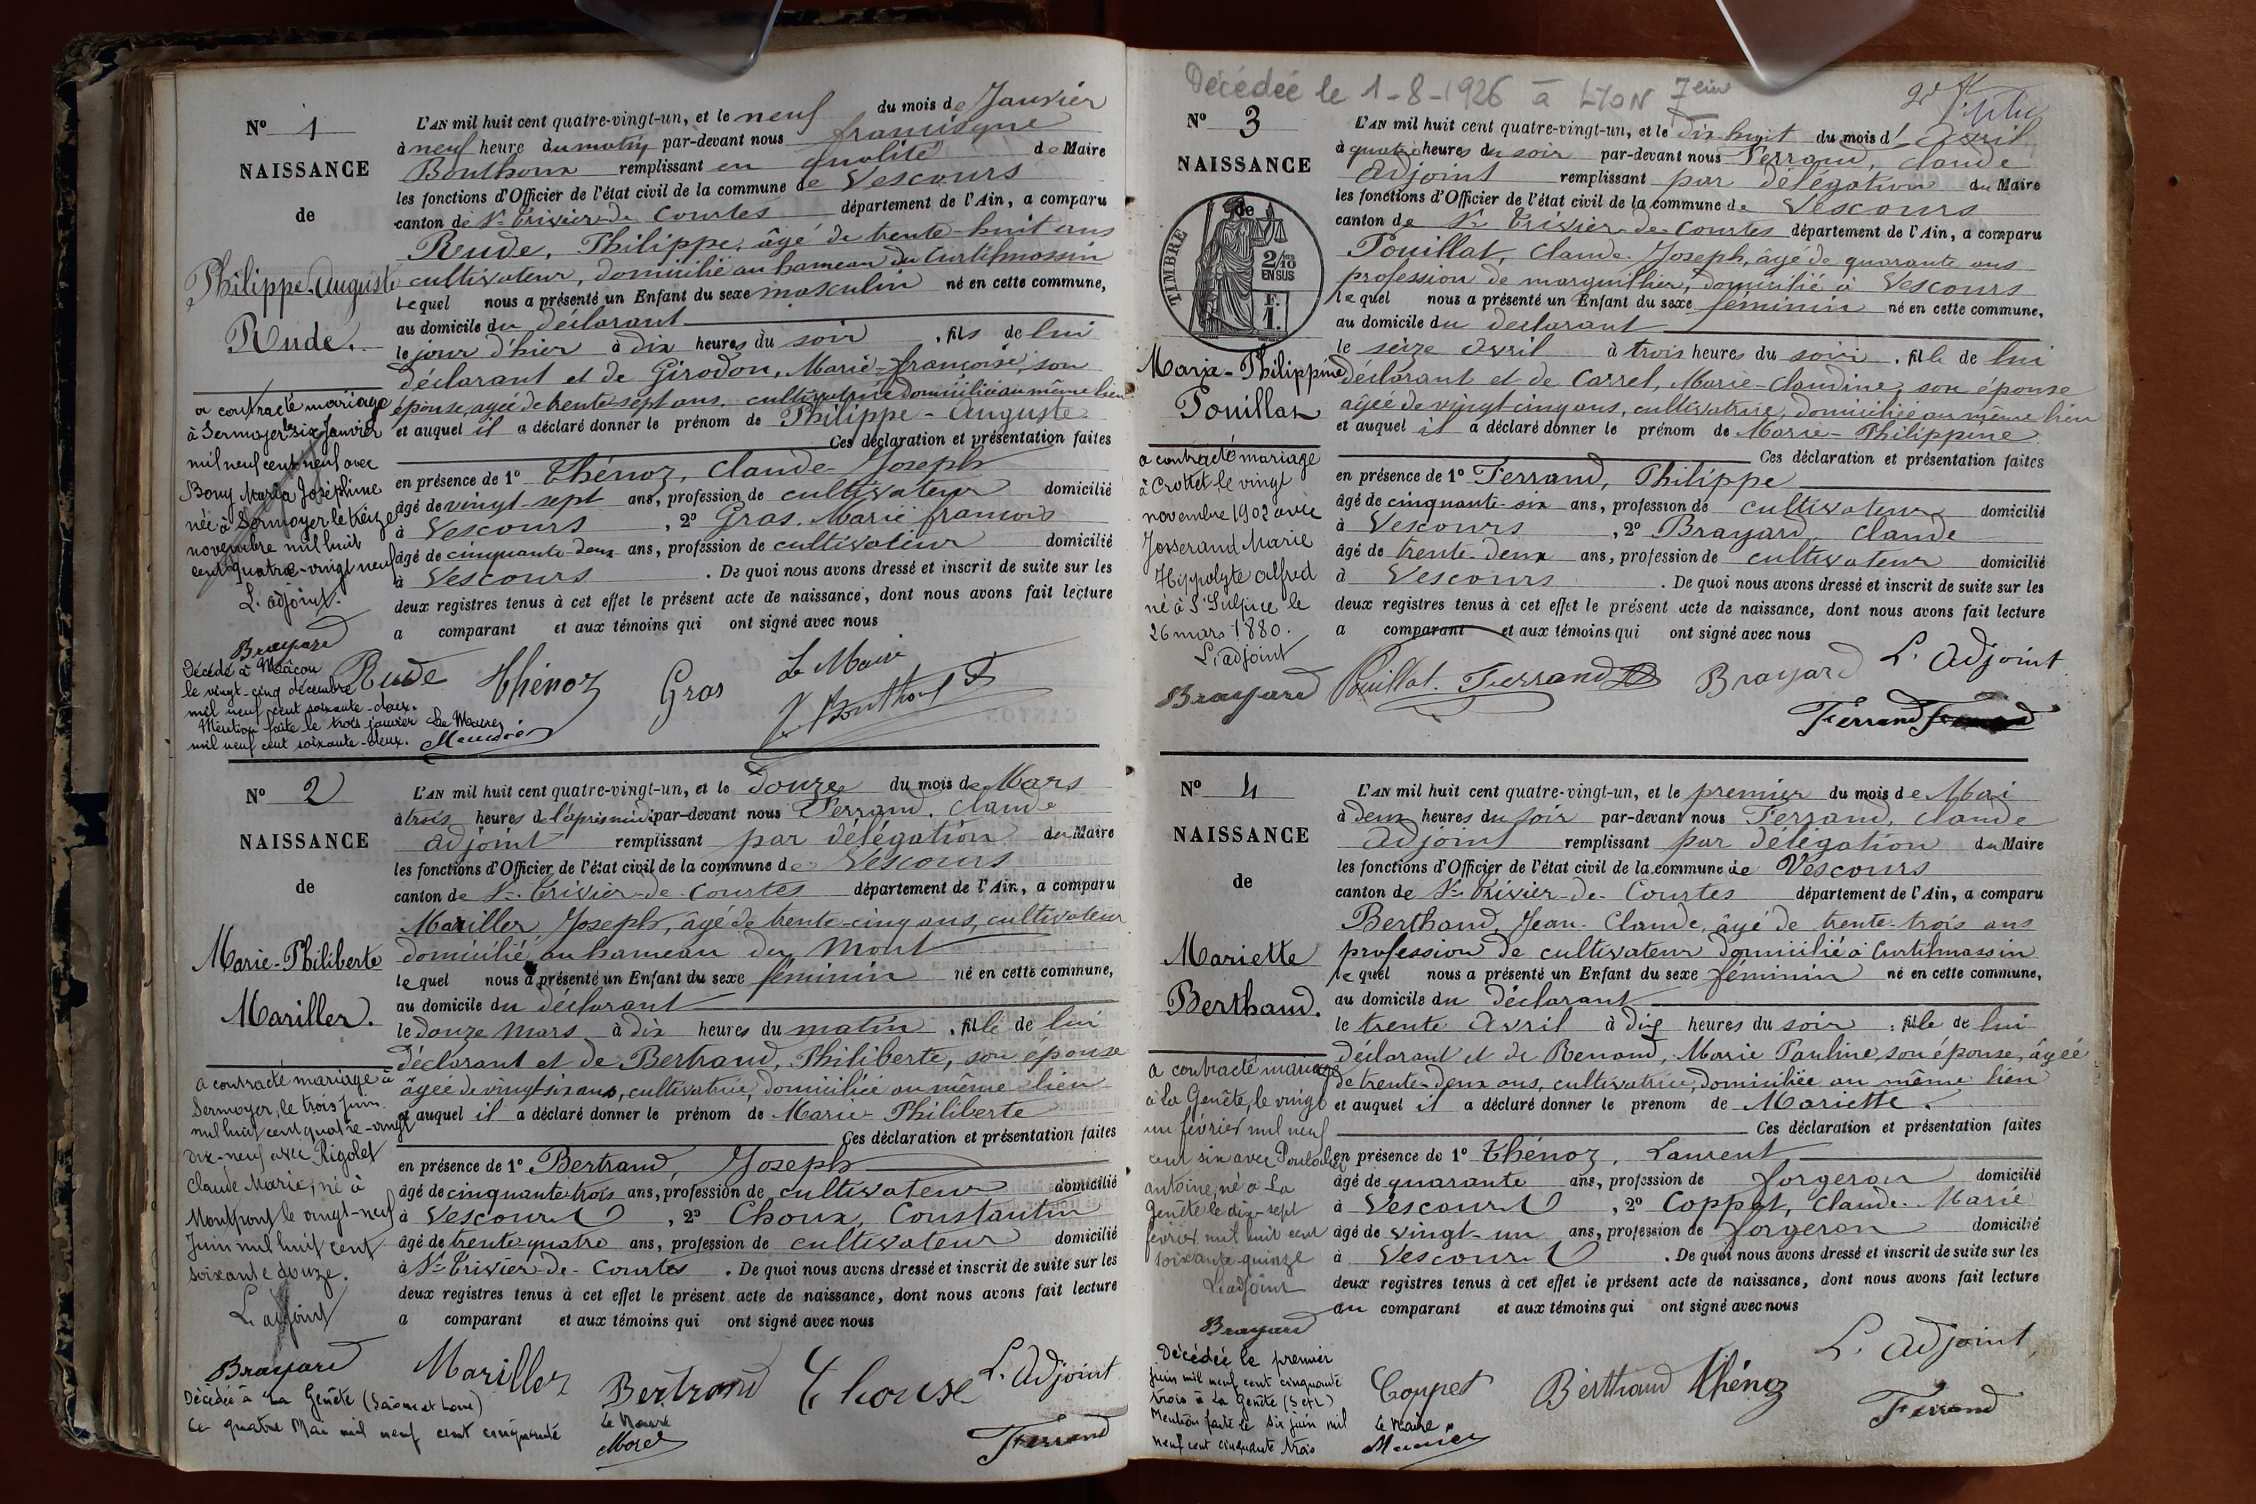 N° 1
NAISSANCE
de
Philippe Auguste
Rude.
a contracté mariage
à Sermoyer le six Janvier
mil neuf cent neuf avec
Bony Maria Joséphine
née à Sermoyer le treize
novembre mil huit
cent quatre-vingt neuf
L'adjoint.
Brayard
Décédé à Mâcon
le vingt-cinq décembre
mil neuf cent soixante-deux.
Mention faite le trois janvier
mil neuf cent soixante-deux.
Le Maire
L'AN mil huit cent quatre-vingt-un, et le neuf du mois de Janvier
à neuf heure du matin par-devant nous francisque
Bouthoux remplissant en qualité de Maire
les fonctions d'Officier de l'état civil de la commune de Vescours
canton de St Trivier-de Courtes département de l'Ain, a comparu
Rude, Philippe, âgé de trente-huit ans
cultivateur, domicilié au hameau du Curtilmassin
lequel nous a présenté un Enfant du sexe masculin né en cette commune,
au domicile du déclarant
le jour d'hier à dix heures du soir, fils de lui
déclarant et de Girodon, Marie-françoise, son
épouse, agée de trente sept ans, cultivatrice domiciliée au même lieu
et auquel il a déclaré donner le prénom de Philippe-Auguste
Ces déclaration et présentation faites
en présence de 1° Thénoz, Claude-Joseph
âgé de vingt-sept ans, profession de cultivateur domicilié
à Vescours, 2° Gras, Marie françois
âgé de cinquante-deux ans, profession de cultivateur domicilié
à Vescours. De quoi nous avons dressé et inscrit de suite sur les
deux registres tenus à cet effet le présent acte de naissance, dont nous avons fait lecture
a comparant et aux témoins qui ont signé avec nous
Rude Thénoz Gras Le Maire
N° 2
NAISSANCE
de
Marie-Philiberte
Mariller.
a contracté mariage à
Sermoyer, le trois juin
mil huit cent quatre-vingt
dix-neuf avec Rigolet
Claude Marie, né à
Montpont le vingt-neuf
Juin mil huit cent
soixante douze.
L'adjoint
Brayard
Décédée à La Genête (Saône et Loire)
le quatre Mai mil neuf cent cinquante
Le Maire
Morel
L'AN mil huit cent quatre-vingt-un, et le Douze du mois de Mars
à trois heures de l'après midi par-devant nous Ferrand, Claude
adjoint remplissant par délégation du Maire
les fonctions d'Officier de l'état civil de la commune de Vescours
canton de St Trivier-de-Courtes département de l'Ain, a comparu
Mariller Joseph, âgé de trente-cinq ans, cultivateur
domicilié au hameau du Mont
lequel nous a présenté un Enfant du sexe féminin né en cette commune,
au domicile du déclarant
le douze Mars à dix heures du matin, fille de lui
déclarant et de Bertrand, Philiberte, son épouse
âgée de vingt-six ans, cultivatrice, domiciliée au même lieu
et auquel il a déclaré donner le prénom de Marie-Philiberte
Ces déclaration et présentation faites
en présence de 1° Bertrand, Joseph
âgé de cinquante trois ans, profession de cultivateur domicilié
à Vescours, 2° Choux, Constantin
âgé de trente-quatre ans, profession de cultivateur domicilié
à St Trivier-de-Courtes. De quoi nous avons dressé et inscrit de suite sur les
deux registres tenus à cet effet le présent acte de naissance, dont nous avons fait lecture
a comparant et aux témoins qui ont signé avec nous
Mariller Bertrand L'Adjoint
Ferrand
Décédée le 1-8-1926 à LYON 7eme
N° 3
NAISSANCE
de
TIMBRE
2/10
EN SUS
F.
1.
Maria-Philippine
Pouillat
a contracté mariage
à Crottet le vingt
novembre 1902 avec
Josserand Marie
Hippolyte alfred
né à St Sulpice le
26 mars 1880.
L'adjoint
Brayard
L'AN mil huit cent quatre-vingt-un, et le dix huit du mois d'Avril
à quatre heures du soir par-devant nous Ferrand, Claude
Adjoint remplissant par délégation du Maire
les fonctions d'Officier de l'état civil de la commune de Vescours
canton de St Trivier-de-Courtes département de l'Ain, a comparu
Pouillat, Claude Joseph, âgé de quarante ans
profession de marguillier, domicilié à Vescours
lequel nous a présenté un Enfant du sexe féminin né en cette commune,
au domicile du déclarant
le seize Avril à trois heures du soir, fille de lui
déclarant et de Carrel, Marie-Claudine, son épouse
âgée de vingt-cinq ans, cultivatrice, domiciliée au même lieu
et auquel il a déclaré donner le prénom de Marie-Philippine
Ces déclaration et présentation faites
en présence de 1° Ferrand, Philippe
âgé de cinquante-six ans, profession de cultivateur domicilié
à Vescours, 2° Brayard, Claude
âgé de trente-deux ans, profession de cultivateur domicilié
à Vescours. De quoi nous avons dressé et inscrit de suite sur les
deux registres tenus à cet effet le présent acte de naissance, dont nous avons fait lecture
a comparant et aux témoins qui ont signé avec nous
Pouillat. Ferrand Brayard L'Adjoint
Ferrand
N° 4
NAISSANCE
de
Mariette
Berthaud.
a contracté mariage
à la Genête, le vingt
un février mil neuf
cent six avec
antoine, né à La
Genête le dix-sept
février mil huit cent
soixante-quinze
L'adjoint
Brayard
Décédée le premier
juin mil neuf cent cinquante
trois à La Genête (S et L)
Mention faite le six juin mil
neuf cent cinquante trois
Le Maire
L'AN mil huit cent quatre-vingt-un, et le premier du mois de Mai
à deux heures du soir par-devant nous Ferrand, Claude
Adjoint remplissant par délégation du Maire
les fonctions d'Officier de l'état civil de la commune de Vescours
canton de St Trivier-de-Courtes département de l'Ain, a comparu
Berthaud, Jean-Claude, âgé de trente-trois ans
profession de cultivateur domicilié à Curtilmassin
lequel nous a présenté un Enfant du sexe féminin né en cette commune,
au domicile du déclarant
le trente Avril à dix heures du soir, fille de lui
déclarant et de Renaud, Marie Pauline, son épouse, âgée
de trente-deux ans, cultivatrice, domiciliée au même lieu
et auquel il a déclaré donner le prenom de Mariette.
Ces déclaration et présentation faites
en présence de 1° Thénoz, Laurent
âgé de quarante ans, profession de forgeron domicilié
à Vescours, 2° Coppet, Claude-Marie
âgé de vingt-un ans, profession de forgeron domicilié
à Vescours. De quoi nous avons dressé et inscrit de suite sur les
deux registres tenus à cet effet le présent acte de naissance, dont nous avons fait lecture
au comparant et aux témoins qui ont signé avec nous
Coppet Berthaud Thénoz L'Adjoint
Ferrand